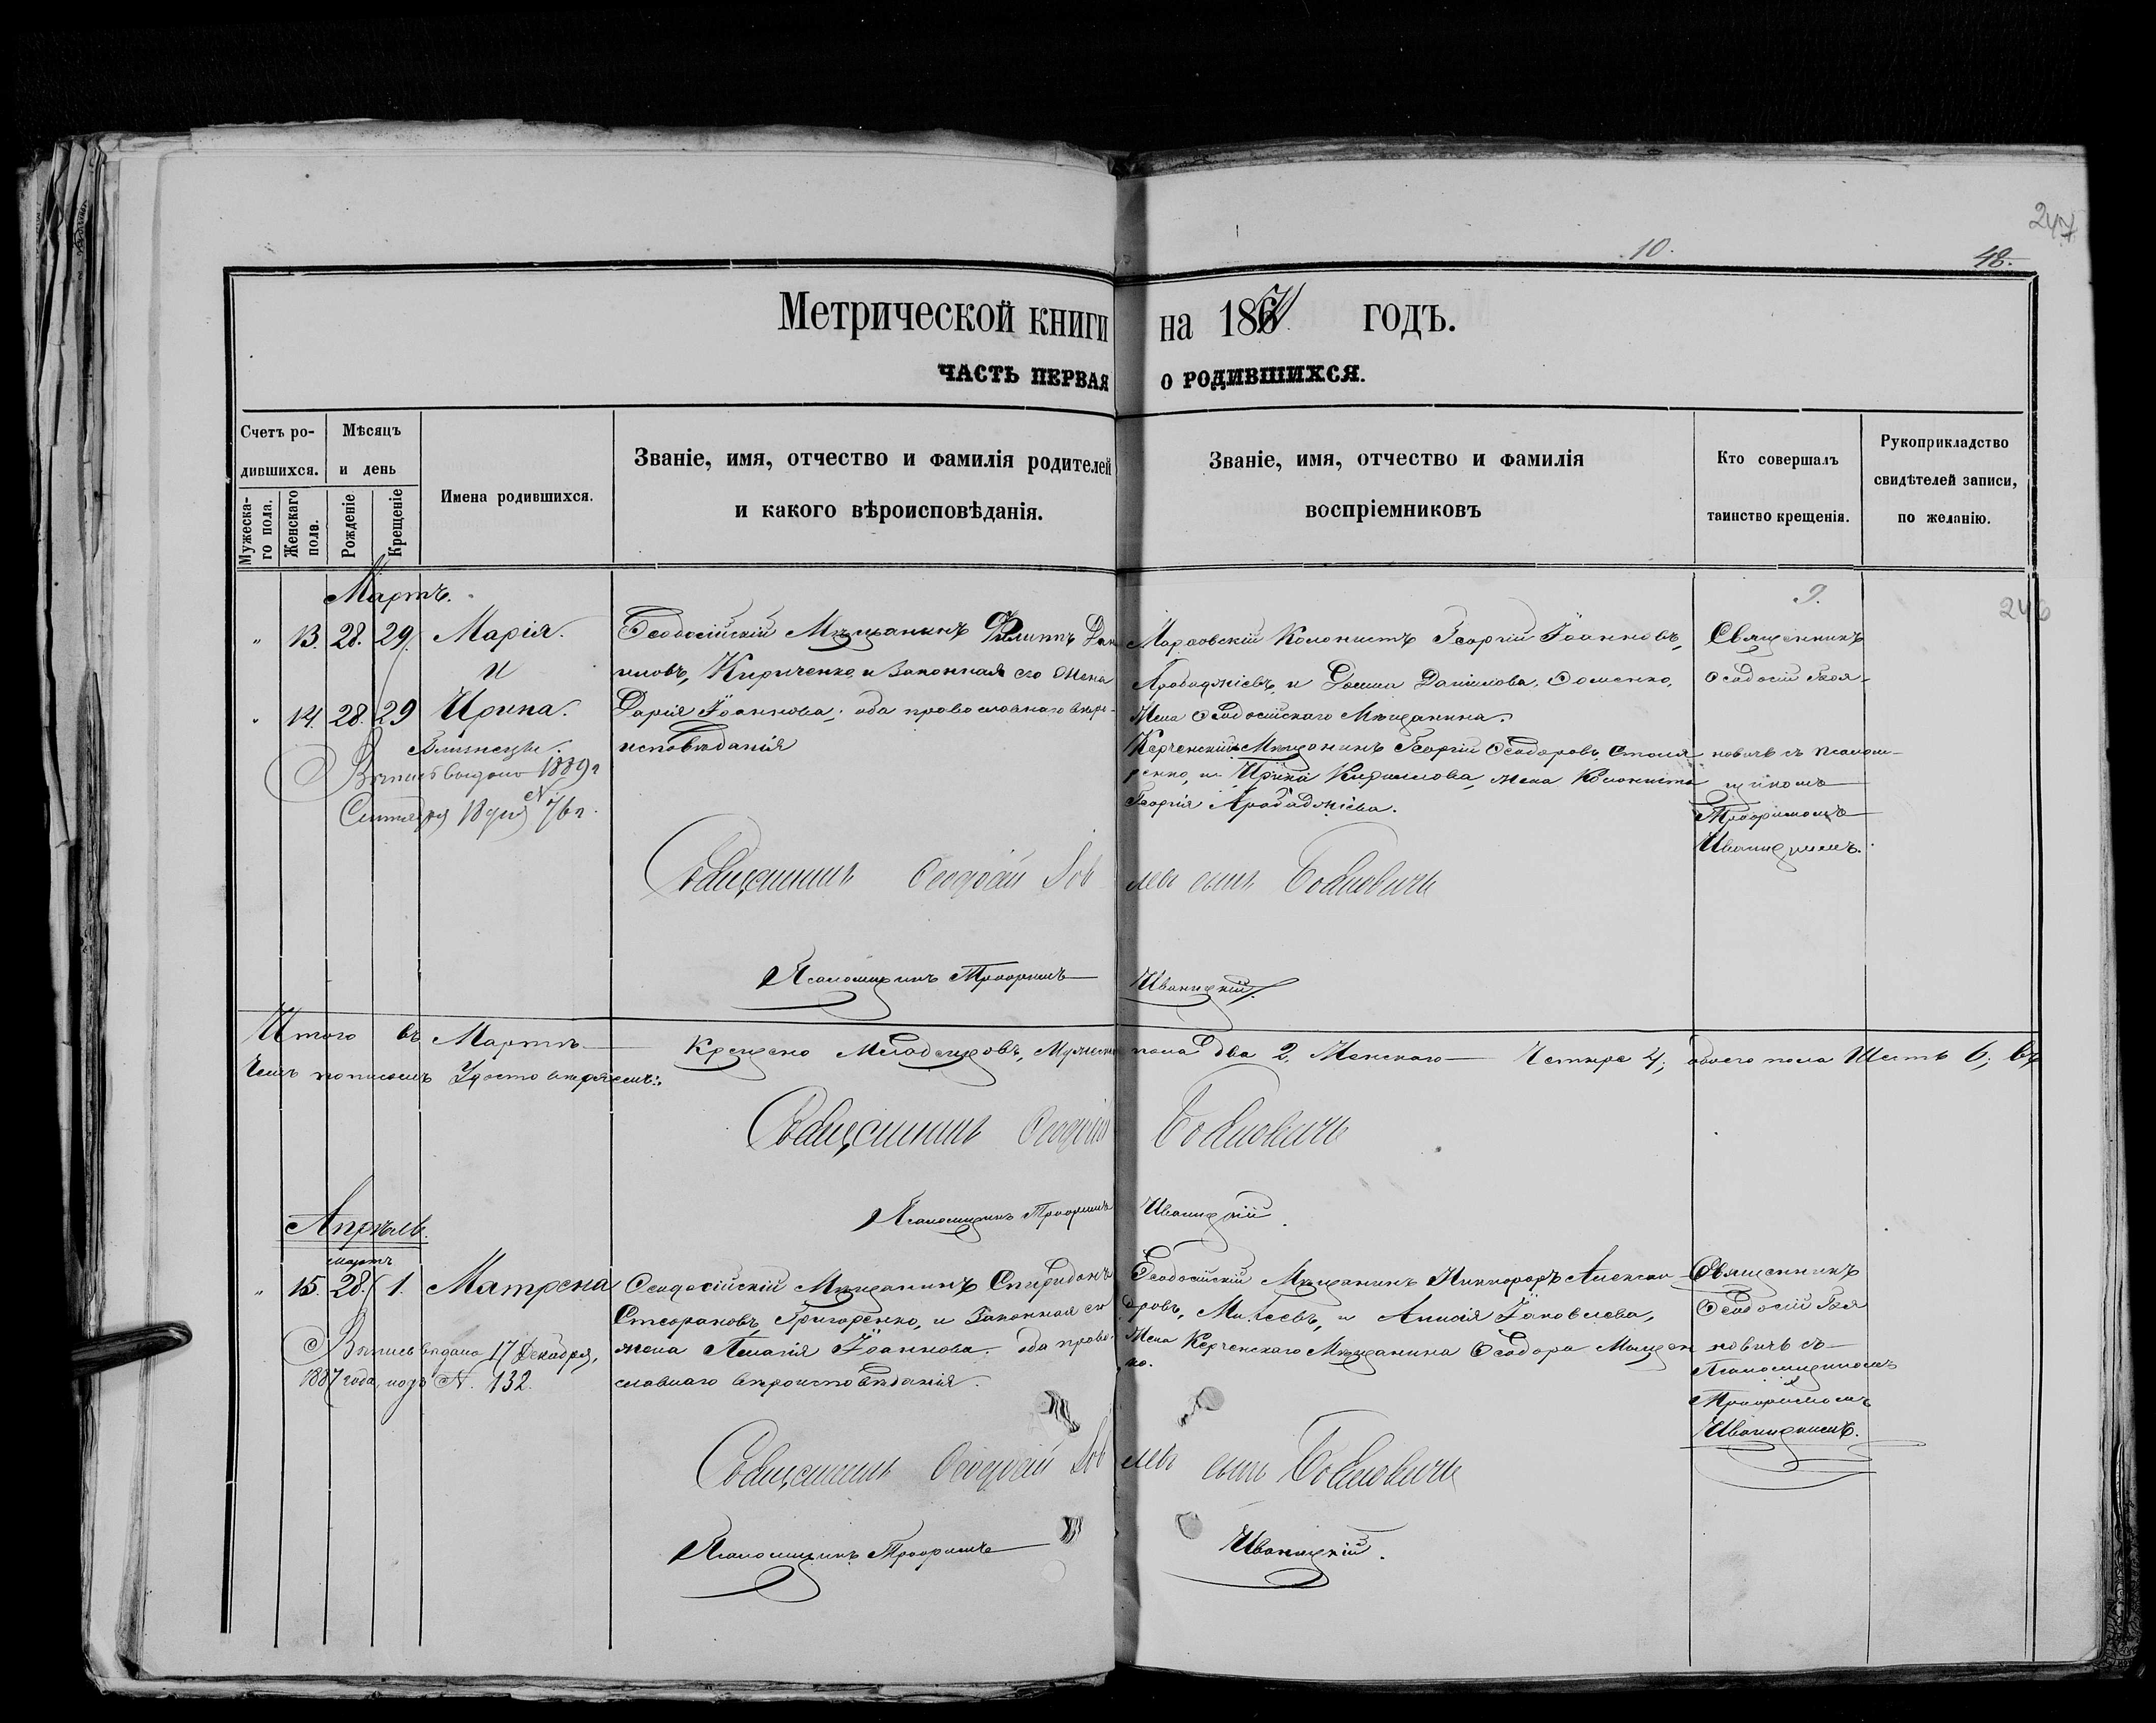 247
10.
48.
Метрической книги на 1871 годъ.
ЧАСТЬ ПЕРВАЯ О РОДИВШИХСЯ.
Счетъ ро-
дившихся.
Мѣсяцъ
и день
Мужеска-
го пола.
Женскаго
пола.
Рожденіе
Крещеніе
Имена родившихся.
Званіе, имя, отчество и фамилія родителей
и какого вѣроисповѣданія.
Званіе, имя, отчество и фамилія
воспріемниковъ
Кто совершалъ
таинство крещенія.
Рукоприкладство
свидѣтелей записи,
по желанію.
Мартъ.
9.
246
" 13. 28. 29. Марія.
и
" 14. 28. 29 Ирина.
Близнецы.
Выпись выдана 1889 г
Сентября 18 дня № 76 г.
Ѳеодосійскій Мѣщанинъ Филиппъ Дани
иловъ, Кириченко, и Законная его жена
Дарія Іоаннова; оба православнаго вѣро-
исповѣданія
Колонистъ Георгій Іоанновъ,
Арабаджіевъ, и Даніилова,
Жена Ѳеодосійскаго Мѣщанина.
Керченскій Мѣщанинъ Георгій Ѳеодоровъ, Столя
ренко, и Ирина Кириллова, жена Колониста
Георгія Арабаджіева.
Священникъ
Ѳеодосій Боя-
новичъ съ псалом-
щикомъ
Трофимомъ
Иваницкимъ.
Священникъ Ѳеодосій Бояновичъ
Псаломщикъ Трофимъ Иваницкій.
Итого въ Мартѣ Крещено Младенцовъ, Мужеска пола два 2, Женскаго Четыре 4; обоего пола Шесть 6; въ
Чемъ подписомъ Удостовѣряемъ:
Священникъ Ѳеодосій Бояновичъ
Псаломщикъ Трофимъ Иваницкій
Апрѣль.
мартъ
" 15. 28. 1. Матрена
Выпись выдана 17 Декабря,
1887 года, подъ №. 132.
Ѳеодосійскій Мѣщанинъ Спиридонъ
Стефановъ, Григоренко, и Законная его
жена Пелагія Іоаннова. оба право-
славнаго вѣроисповѣданія.
Ѳеодосійскій Мѣщанинъ Никифоръ Алексан-
дровъ, и Іаковлева,
Жена Керченскаго Мѣщанина Ѳеодора
ко.
Священникъ
Ѳеодосій Боя
новичъ съ
Псаломщикомъ
Трофимомъ
Иваницкимъ.
Священникъ Ѳеодосій Бояновичъ
Псаломщикъ Трофимъ Иваницкій.